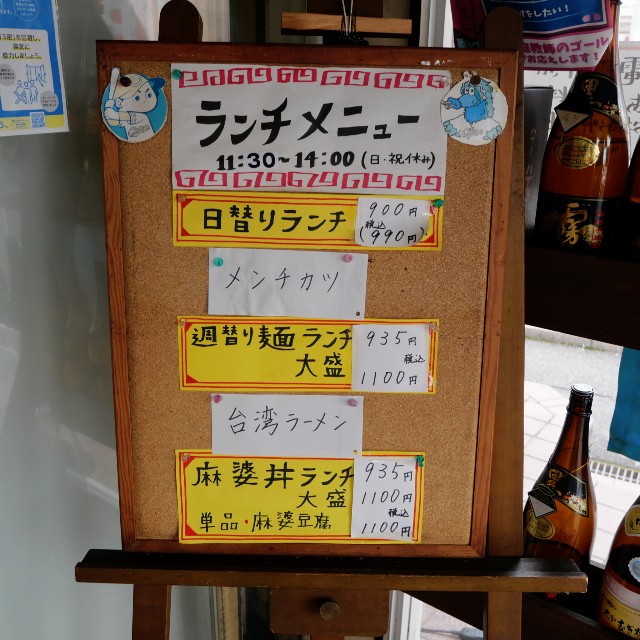 ランチメニュー
11:30～14:00(日・祝休み)
日替りランチ 900円
税込
(990円)
メンチカツ
週替り麺ランチ 935円
税込
大盛 1100円
台湾ラーメン
麻婆丼ランチ 935円
大盛 1100円
税込
単品・麻婆豆腐 1100円